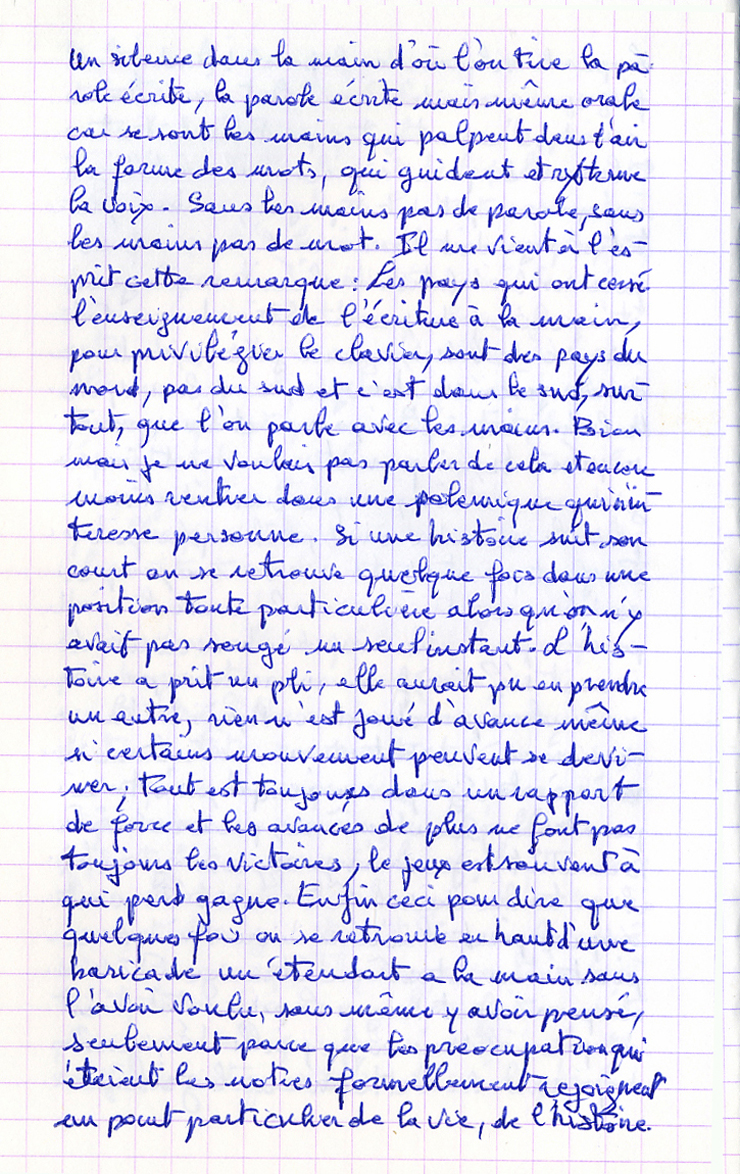 Un silence dans la main d'où l'on tire la pa-
role écrite, la parole écrite mais même orale
car se sont les mains qui palpent dans l'air
la forme des mots, qui guident et rythme
la voix. Sans les mains pas de parole, sans
les mains pas de mot. Il me vient à l'es-
prit cette remarque : Les pays qui ont cessé
l'enseignement de l'écriture à la main,
pour privilégier le clavier, sont des pays du
nord, pas du sud et c'est dans le sud, sur-
tout, que l'on parle avec les mains. Bien
mais je ne voulais pas parler de cela et encore
moins rentrer dans une polemique qui n'in-
teresse personne. Si une histoire suit son
court on se retrouve quelque fois dans une
position toute particulière alors qu'on n'y
avait pas songé un seul instant. L'his-
toire a prit un pli, elle aurait pu en prendre
un autre, rien n'est joué d'avance même
si certains mouvement peuvent se devi-
ner ; tout est toujours dans un rapport
de force et les avancés de plus ne font pas
toujours les victoires, le jeux est souvent à
qui perd gagne. Enfin ceci pour dire que
quelques foi on se retrouve en haut d'une
baricade un étendart a la main sans
l'avoir voulu, sans même y avoir pensé,
seulement parce que les preocupation qui
étaient les notres formellement rejoignent
un point particulier de la vie, de l'histoire.